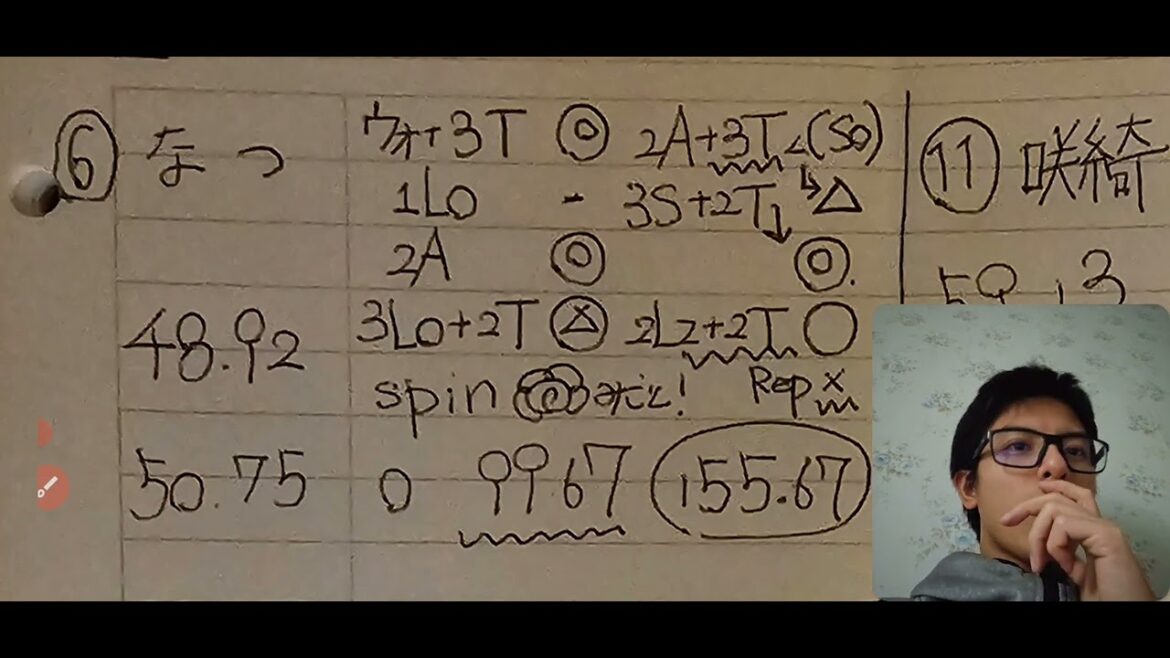 ⑥ なつ ウォ+3T ◎ 2A+3T<(So)
1Lo - 3S+2T↓ ↳△
2A ◎ ◎.
48.92 3Lo+2T 2Lz+2T ○
spin ! Rep x
50.75 0 99.67 155.67
⑪ 咲綺